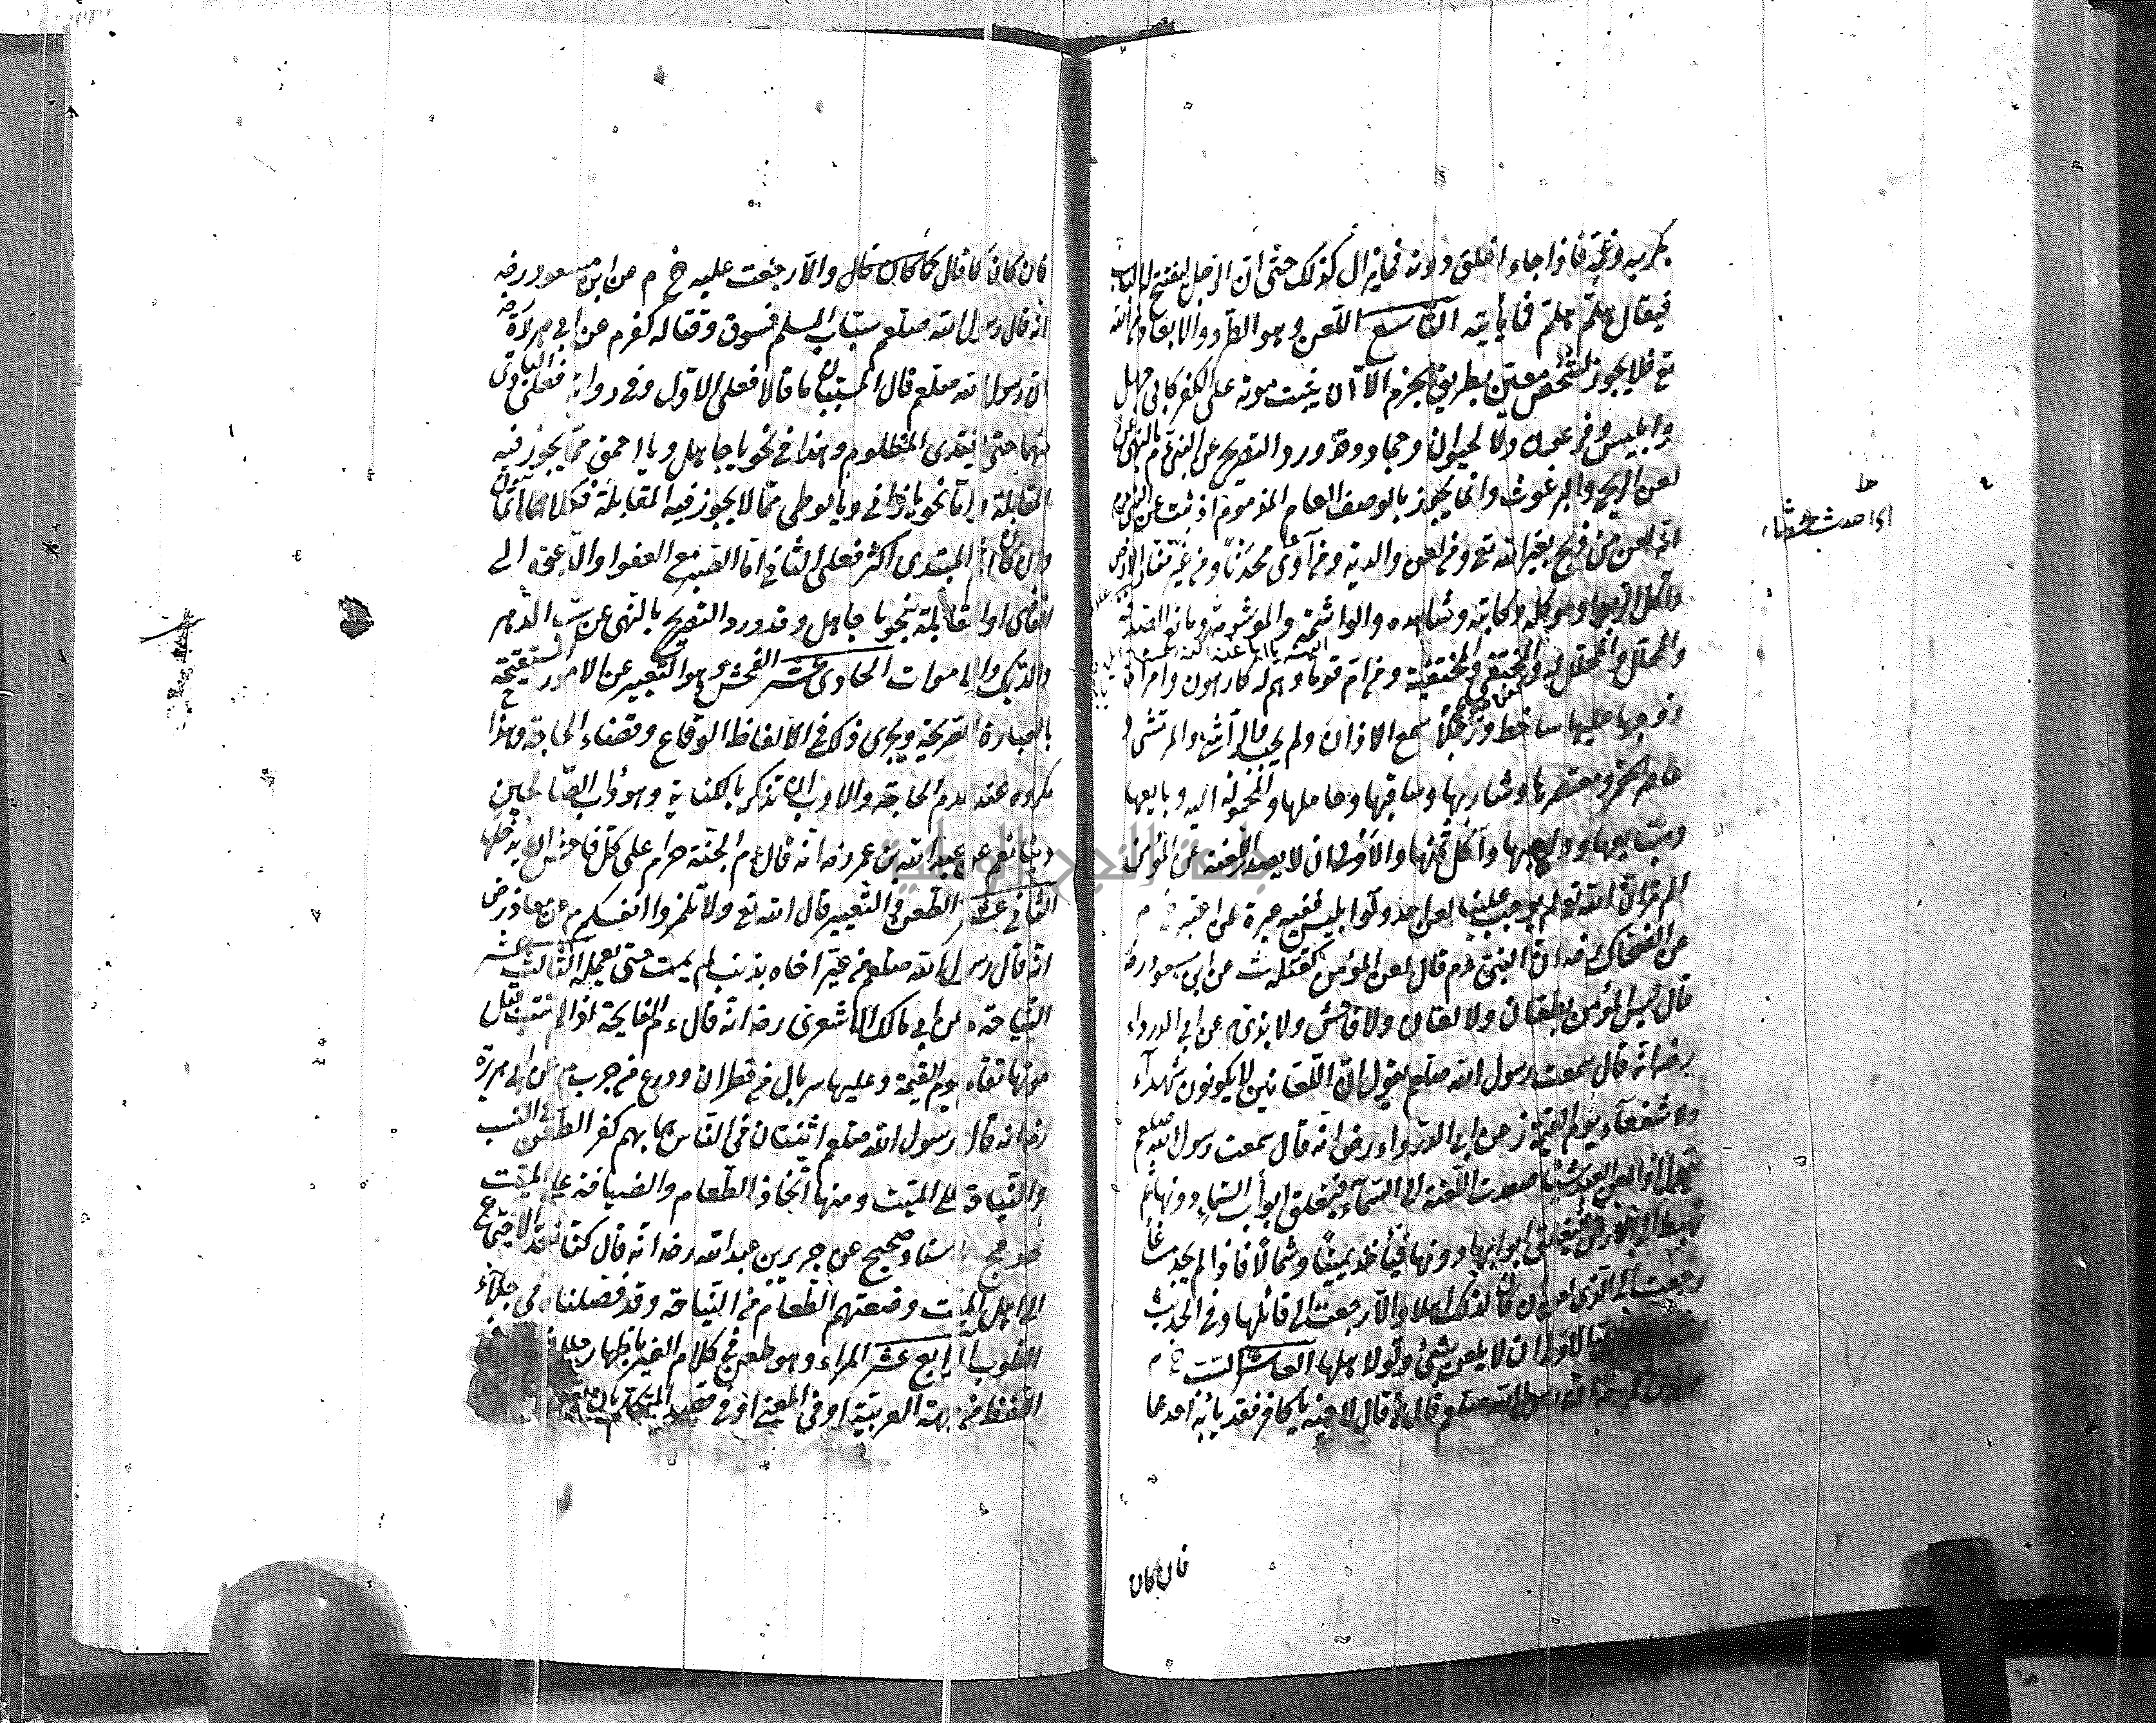 بكربه وغمه فاذا جاء اغلق دونه فمايزال كذلك حتى ان الرجل ليفتح له الباب
فيقال هلم هلم فما يأتيه التاسع اللعن وهو الطرد والابعاد من الله
تع فلا يجوز لشخص معين بطريق الجزم الا ان يثبت موته على الكفر كابى جهل
وابليس وفرعون ولا لحيوان وجماد وقد ورد التصريح عن النبى م بالنهى عن
لعن الريح والبرغوث وانما يجوز بالوصف العام المذموم اذ ثبت عن النبى م
انه لعن من ذبح بغير الله تع ومن لعن والديه ومن آوى محدثا ومن غير تخوم الارض
وآكل الربوا وموكله وكاتبه وشاهده والواشمة والموشومة ومانع الصدقة
والمحلل والمحلل له والمختفى والمختفية ومن ام قوما وهم له كارهون وامرأة
زوجها عليها ساخط ورجلا سمع الاذان ولم يجب والراشى والمرتشى و
عاصر الخمر ومعتصرها وشاربها وساقيها وحاملها والمحمولة اليه وبايعها
ومبتاعها وواهبها وآكل ثمنها والاولى ان لا يصدر اللعنة عن المؤمن
الم تر ان الله تع لم يوجب علينا لعن عدوه ابليس ففيه عبرة لمن اعتبر خ م
عن الضحاك رضه ان النبى م قال لعن المؤمن كقتله ت عن ابن مسعود رضه
قال ليس المؤمن بطعان ولا لعان ولا فاحش ولا بذى م عن ابى الدرداء
رضه انه قال سمعت رسول الله صلعم يقول ان اللعانين لا يكونون شهداء
ولا شفعاء يوم القيمة د عن ابى الدرداء رضى انه قال سمعت رسول الله صلعم
يقول اذا لعن العبد شيئا صعدت اللعنة الى السماء فيغلق ابواب السماء دونها ثم
تهبط الى الارض فيغلق ابوابها دونها فيأخذ يمينا وشمالا فاذا لم يجد مساغا
رجعت الى الذى لعن ان كان لذلك اهلا والا رجعت الى قائلها وفى الحديث
الاولى ان لا يلعن بشئ ولو لاهلها العاشر السب خ م
ان رسول الله صلعم قال من قال لاخيه يا كافر فقد باء به احدهما
فان كان
فان كان كما قال كما كان قال والا رجعت عليه خ م عن ابن مسعود رضه
انه قال رسول الله صلعم سباب المسلم فسوق وقتاله كفر م عن ابى هريرة رضه
ان رسول الله صلعم قال المستبان ما قالا فعلى الاول وفى رواية فعلى البادى
منهما حتى يعتدى المظلوم وهذا فى نحو يا جاهل ويا احمق مما يجوز فيه
المقابلة واما نحو يا زانى ويا لوطى مما لا يجوز فيه المقابلة فكلاهما آثمان
وان كان اثم المبتدى اكثر فعلى الثانى اما الصبر مع العفو او الدعوة الى
القاضى او المقابلة بنحو يا جاهل وقد ورد التصريح بالنهى عن سب الدهر
والديك والاموات الحادى عشر الفحش وهو التعبير عن الامور المستقبحة
بالعبارة الصريحة ويجرى ذلك فى الالفاظ الوقاع وقضاء الحاجة وهذا
مكروه عند عدم الحاجة والادب ان تذكر بالكناية وهو دأب الصالحين
دنيا نعم عن عبد الله بن عمر رضه انه قال م الجنة حرام على كل فاحش ان يدخلها
الثانى عشر الطعن والتعيير قال الله تع ولا تلمزوا انفسكم م عن معاذ رضى
انه قال رسول الله صلعم من عير اخاه بذنب لم يمت حتى يعمله الثالث عشر
النياحة م عن ابى مالك الاشعرى رضه انه قال ء م النايحة اذا لم تتب قبل
موتها تقام يوم القيمة وعليها سربال من قطران ودرع من جرب م عن ابى هريرة
رضه انه قال رسول الله صلعم اثنتان فى الناس هما بهم كفر الطعن فى النسب
والنياحة على الميت ومنها اتخاذ الطعام والضيافة على الميت
باسناد صحيح عن جرير بن عبد الله رضه انه قال كنا نعد الاجتماع
الى اهل الميت وصنعتهم الطعام من النياحة وقد فصلناه فى جلاء
القلوب الرابع عشر المراء وهو طعن فى كلام الغير باظهار خلل فى
اللفظ من جهة العربية او فى المعنى او فى قصد المتكلم